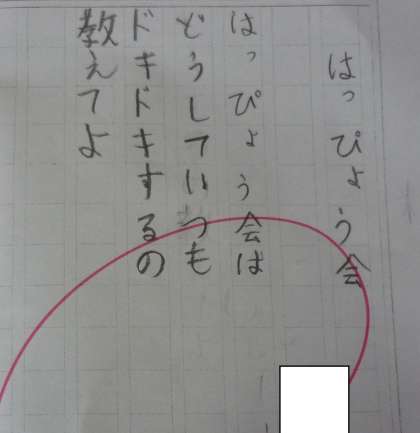 はっぴょう会
はっぴょう会は
どうしていつも
ドキドキするの
教えてよ